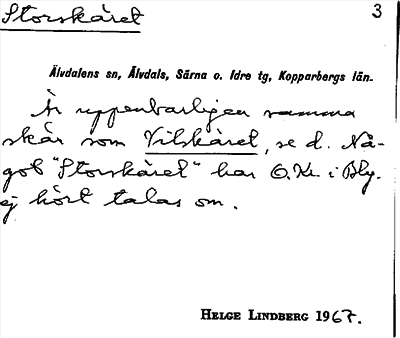 Storskäret
3
Älvdalens sn, Älvdals, Särna o. Idre tg, Kopparbergs län.
Är uppenbarligen samma
skär som Vilskäret, se d. Nå-
got "Storskäret" har O.Kr. i Bly.
ej hört talas om.
HELGE LINDBERG 1967.